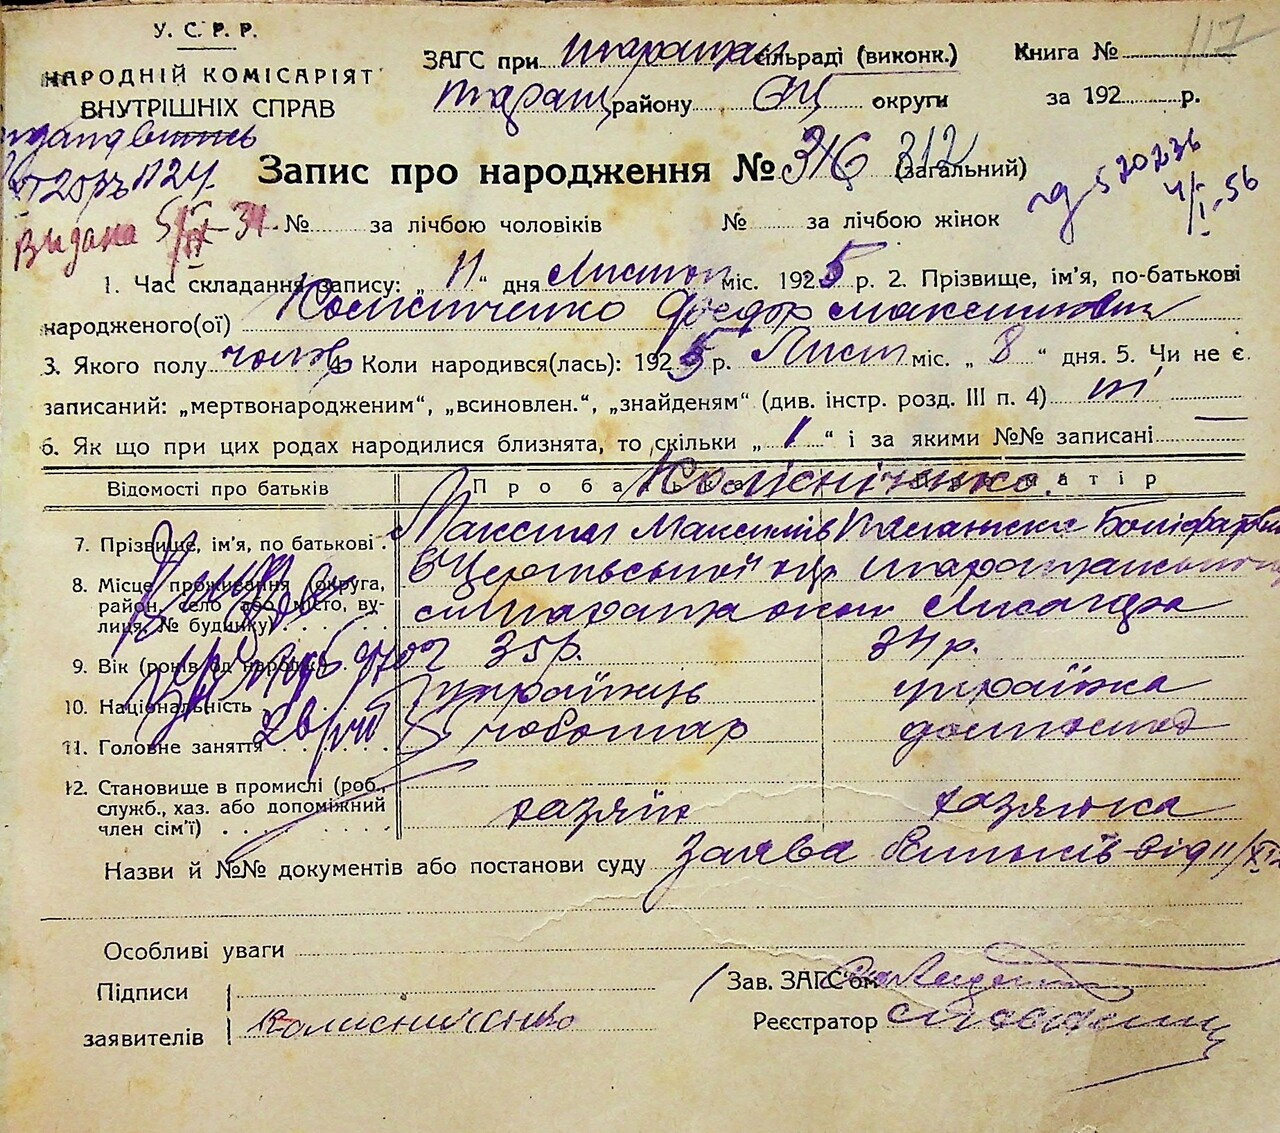 117
У. С. Р. Р.
НАРОДНІЙ КОМІСАРІЯТ
ВНУТРІШНІХ СПРАВ
ЗАГС при Таращан сільраді (виконк.)
Таращ району БЦ округи
Книга №
за 192 р.
Запис про народження № 316 312 (загальний)
Видана 5/IX-34.
№ за лічбою чоловіків № за лічбою жінок
520236
4/I-56
1. Час складання запису: „ 11 “ дня Листоп міс. 1925 р. 2. Прізвище, ім'я, по-батькові
народженого(ої) Колісніченко Федор Максимович
3. Якого полу чолов 4. Коли народився(лась): 1925 р. Лист міс. „ 8 “ дня. 5. Чи не є
записаний: „мертвонародженим“, „всиновлен.“, „знайденям“ (див. інстр. розд. III п. 4) ні
6. Як що при цих родах народилися близнята, то скільки „ 1 “ і за якими №№ записані —
Відомості про батьків Про батька Про матір
Колісніченко
7. Прізвище, ім'я, по батькові Максим Максимів
8. Місце проживання (округа, Б Церківської окр Таращанського
район, село або місто, ву-
лиця, № будинку) Лисагора
9. Вік (років од народж.) 35р. 34р.
10. Національність українць українка
11. Головне заняття чоботар
12. Становище в промислі (роб.,
служб., хаз. або допоміжний хазяїн хазяюка
член сім'ї)
Назви й №№ документів або постанови суду Заява батьків від 11/XI
Особливі уваги
Підписи
заявителів Колисниченко
Зав. ЗАГС'ом
Реєстратор